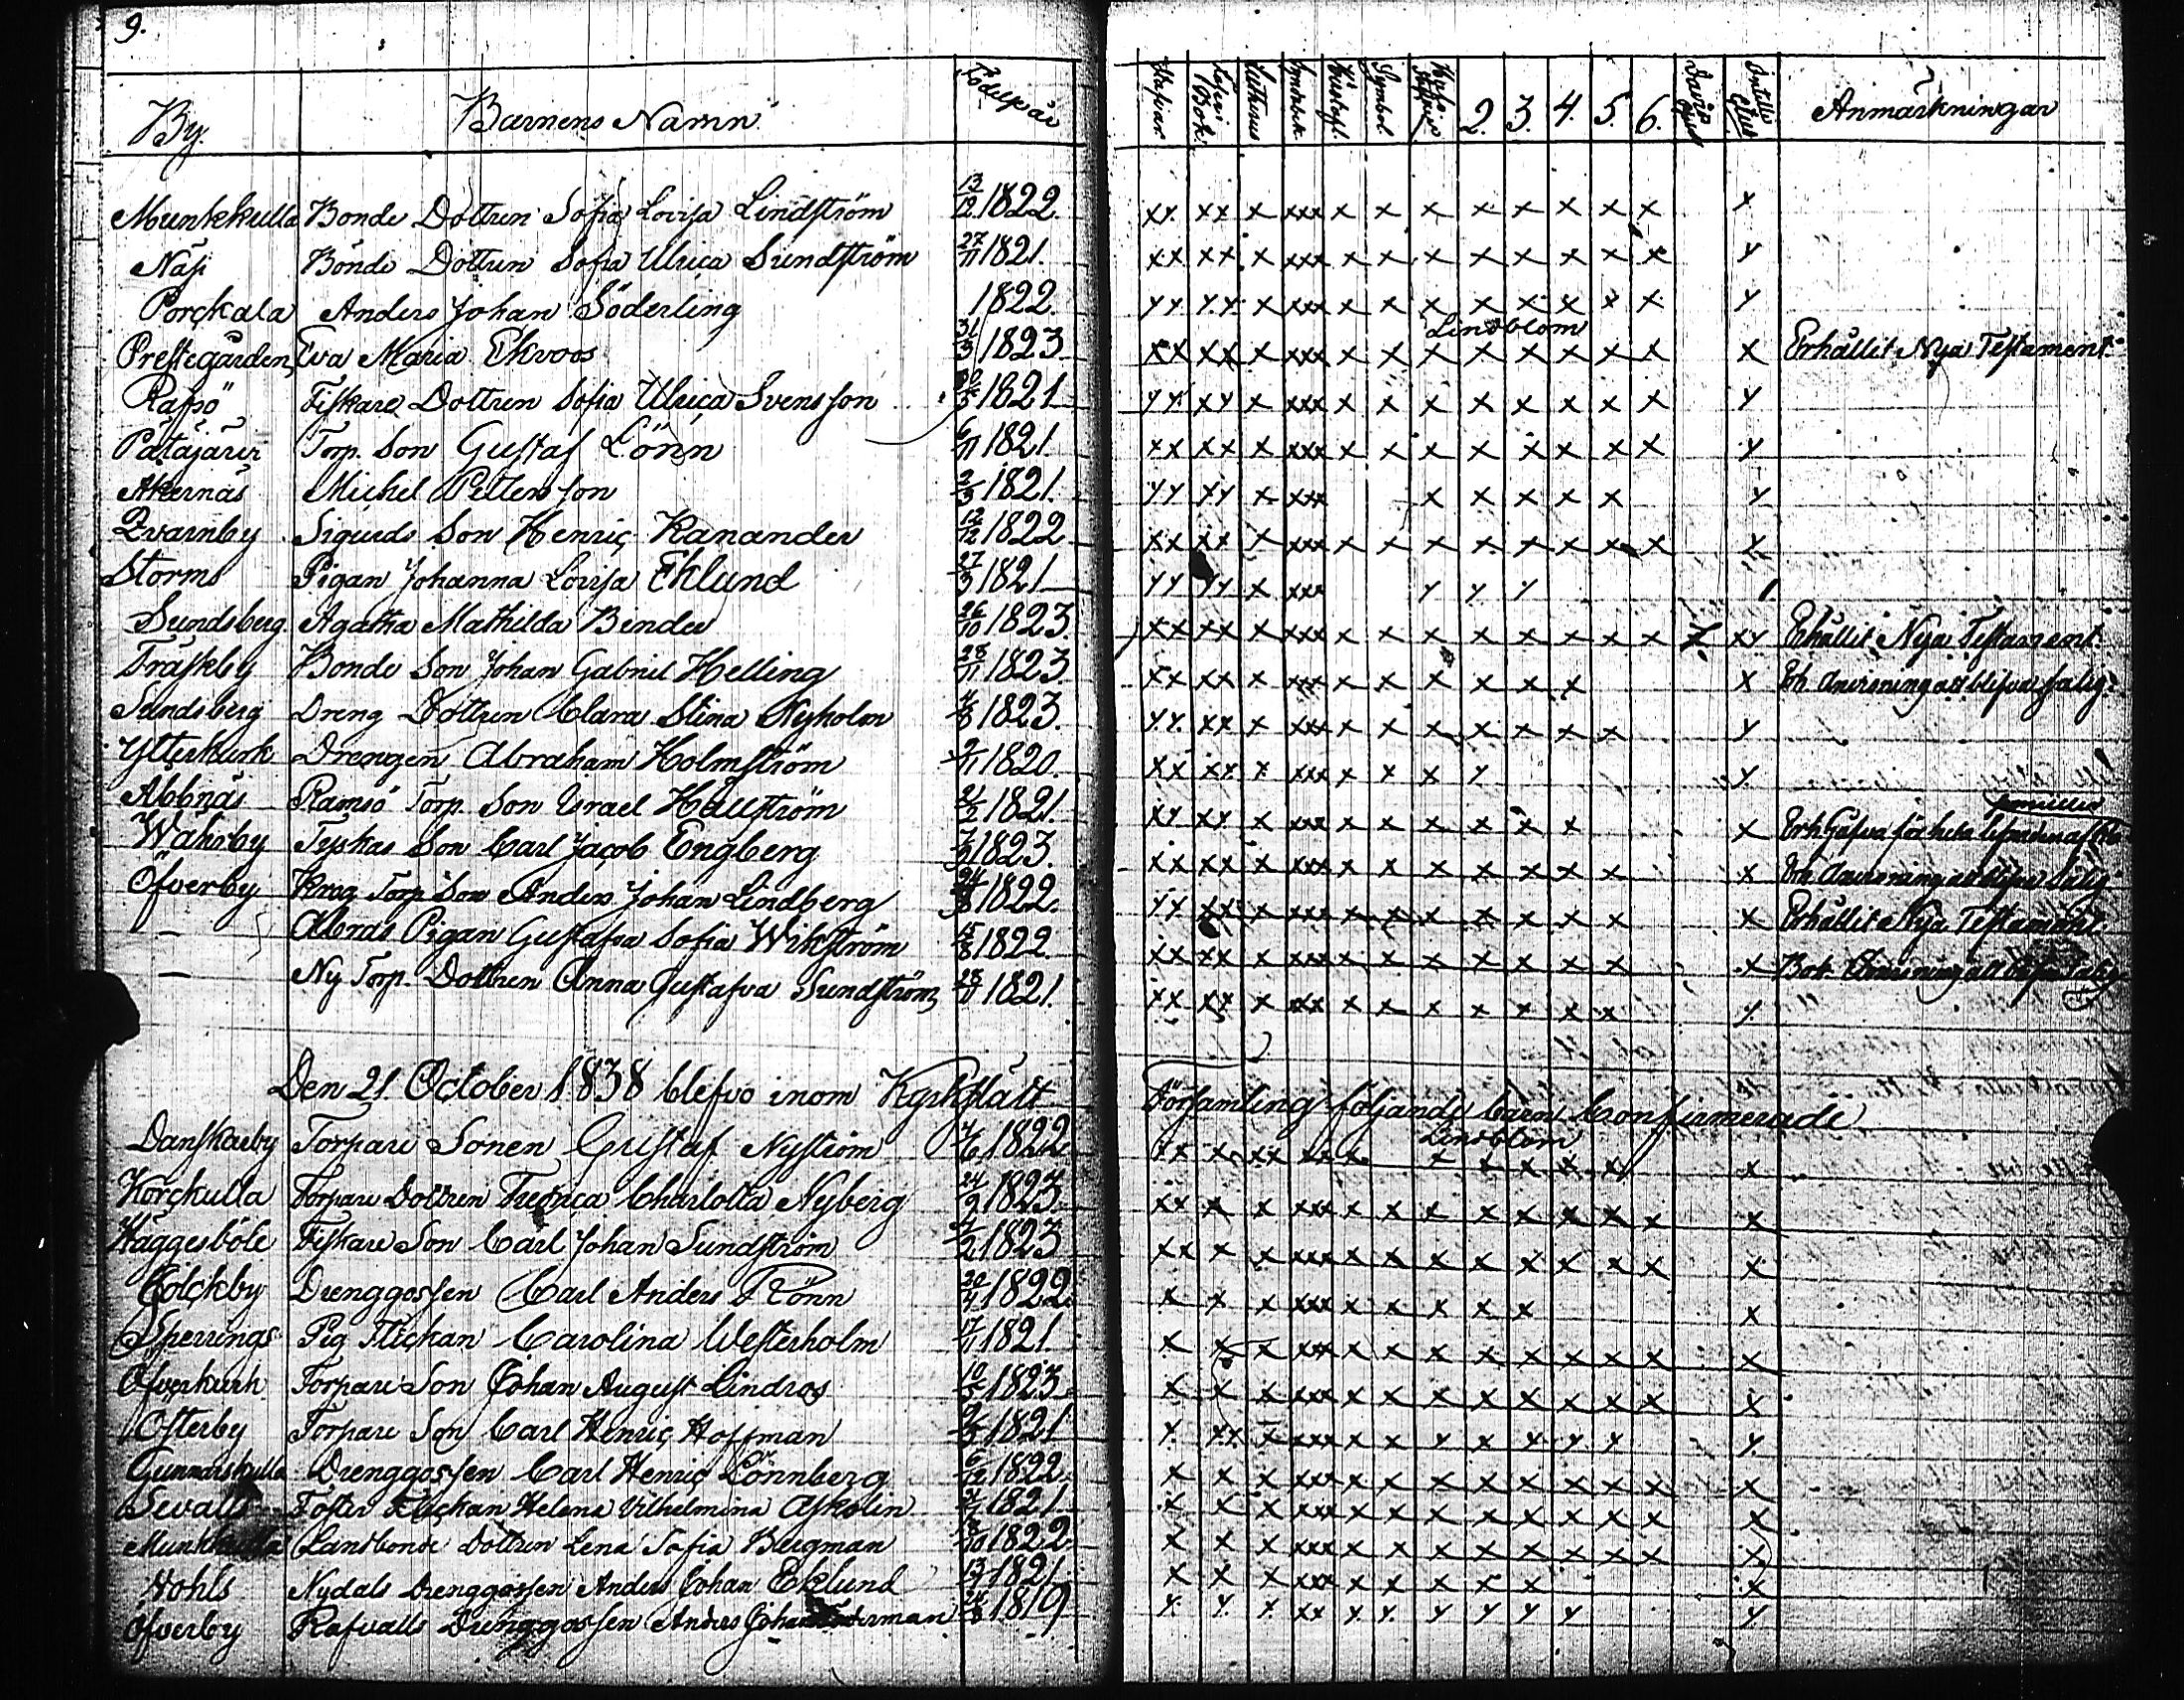 9.
By. Barnens Namn Födelseår Stafvar. Luthrus Hustafl. Symbol. 2. 3. 4. 5. 6. Anmärkningar
Munkkulla Bonde Dottren Sofia Lovisa Lindström 13/12 1822 xx xx x xxx x x x x x x x x x
Näsi Bonde Dottren Sofia Ulrica Sundström 27/11 1821. xx xx x xxx x x x x x x x x x
Porçkala Anders Johan Söderling 1822. xx xx x xxx x x x x x x x x x
Lindblom
Prestegården, Eva Maria Ekroos 31/3 1823 xx xx x xxx x x x x x x x x x Erhållit Nya Testament.
Rafsö Fiskare Dottren Sofia Ulrica Svensson 1821 xx xx x xxx x x x x x x x x x
Påtäjärvi Torp. Son Gustaf Lönn 6/11 1821. xx xx x xxx x x x x x x x x x
Åkernäs Michel Petterson 2/3 1821. xx xx x xxx x x x x x x
Qvarnby Sigurds Son Henriç Kanander 12/12 1822 xx xx x xxx x x x x x x x x x
Storms Pigan Johanna Lovisa Eklund 27/3 1821 xx xx x xxx x x x
Sundsberg Agatha Mathilda Binder 26/10 1823. xx xx x xxx x x x x x x x x x xx Erhållit Nya Testament.
Träskby Bonde Son Johan Gabriel Helling 28/11 1823 xx xx x xxx x x x x x x x Erh. Anvisning att blifva salig.
Sundsberg Dreng Dottren Clara Stina Nyholm 1823. xx xx x xxx x x x x x x x x
Ytterkurk Drengen Abraham Holmström 2/11 1820. xx xx x xxx x x x x x
Abbnäs Ramsö Torp. Son Israel Hällström 21/2 1821. xx xx x xxx x x x x x x x x Erh. Gåfva för hela
Wahrby Tyskas Son Carl Jacob Engberg 1823. xx xx x xxx x x x x x x x x Erh. Anvisning att blifva salig
Öfverby Krog Torp Son Anders Johan Lindberg 1822. xx xx x xxx x x x x x x x x Erhållit Nya Testament.
— Abras Pigan Gustafva Sofia Wikström 15/8 1822. xx xx x xxx x x x x x x x x Bok. Anvisning att blifva salig
— Ny Torp. Dottren Anna Gustafva Sundström, 23/11 1821. xx xx x xxx x x x x x x x x
Den 21. October 1838 blefvo inom Kyrkslätt Församling följande barn Confirmerade
Lindblom
Danskarby Torpare Sonen Gustaf Nyström 1822 xx x xx xx x x x x x x x
Korçkulla Torpare Dottren Fredrica Charlotta Nyberg 24/9 1823 xx x xxx x x x x x x x x x
Häggesböle Fiskare Son Carl Johan Sundström 1823 xx x x xxx x x x x x x x x x
Colçkby Drenggossen Carl Anders Rönn 20/4 1822 x x x xxx x x x x x x
Sperrings Pig Fliçkan Carolina Westerholm 17/11 1821. x x x xxx x x x x x x x x x
Öfverkurk Torpare Son Johan August Lindros 10/5 1823. x x x xxx x x x x x x x x x
Österby Torpare Son Carl Henriç Hoffman 1821 x xx x xxx x x x x x x x x
Gunnarskulla Drenggossen Carl Henriç Lönnberg 6/12 1822. x x x xxx x x x x x x x x x
Sevalls Foster Fliçkan Helena Vilhelmina Askolin 1821. x x x xxx x x x x x x x x x
Munkkulla Landbonde Dottren Lena Sofia Bergman 1822 x x x xxx x x x x x x x x x
Hohls Nydals Drenggossen Anders Johan Ecklund 1821. x x x xxx x x x x x x
Öfverby Rafvalls Drenggossen Anders Johan 1819 x x x xx x x x x x x x